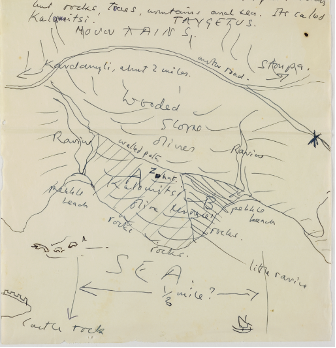 but rocks, trees, mountains and sea. Its called
Kalamitsi. TAYGETUS
MOUNTAINS
motor road.
Stoupa.
Kardamyli, about 2 miles.
Wooded
Slope
olives
Ravine
Ravine
mule path
A
B
Kalamitsi
olive terraces
pebble
beach
pebble
beach
rocks
rocks.
rocks.
little ravine
SEA
1/8
mile?
Castle rock